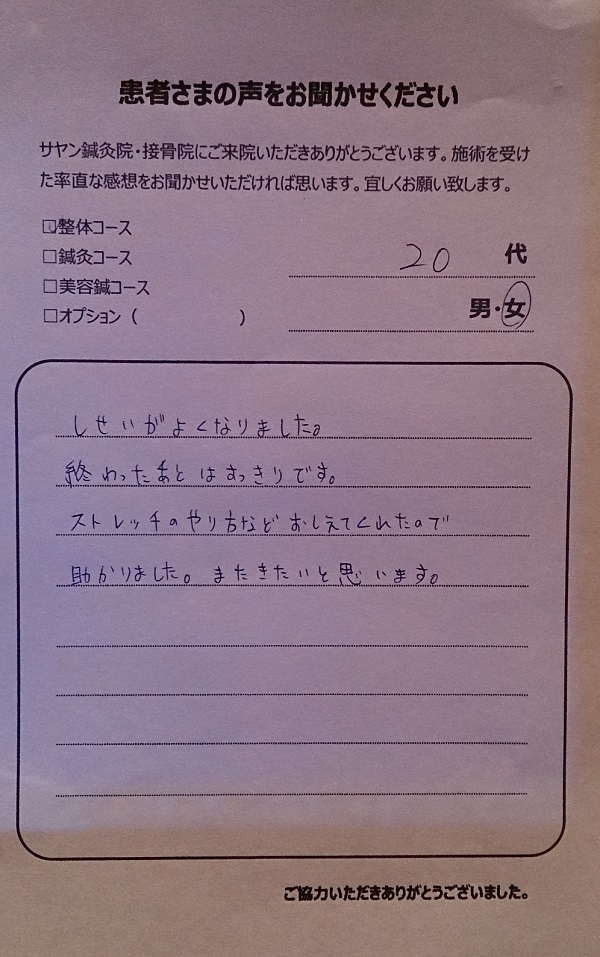 患者さまの声をお聞かせください
サヤン鍼灸院・接骨院にご来院いただきありがとうございます。施術を受け
た率直な感想をお聞かせいただければ思います。宜しくお願い致します。
☑整体コース
□鍼灸コース
□美容鍼コース
□オプション（　　　　　　）
20 代
男・女
しせいがよくなりました。
終わったあとはすっきりです。
ストレッチのやり方などおしえてくれたので
助かりました。またきたいと思います。
ご協力いただきありがとうございました。